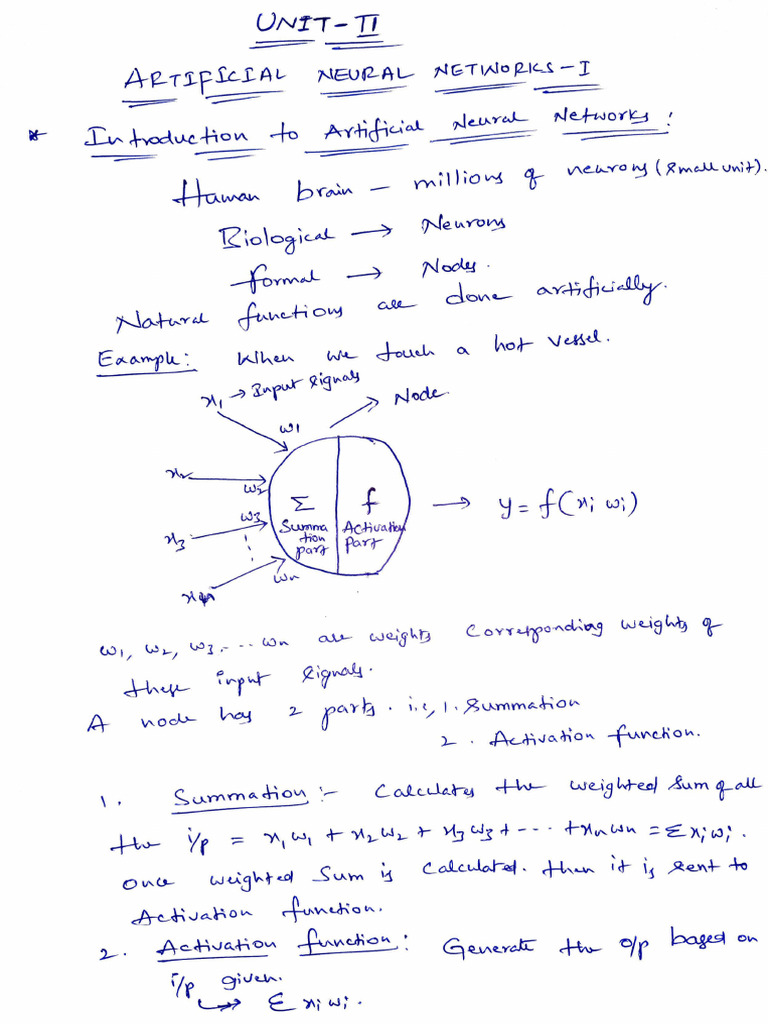 UNIT-II
ARTIFICIAL NEURAL NETWORKS-I
* Introduction to Artificial Neural Networks:
Human brain – millions of neurons (small unit).
Biological → Neurons
formal → Nodes.
Natural functions are done artificially.
Example: When we touch a hot vessel.
x1 → Input signals
Node
w1
x2
w2
w3
x3
wn
xn
Σ
Summation part
f
Activation Part
→ y = f(xi wi)
w1, w2, w3, ... wn are weights corresponding weights of
these input signals.
A node has 2 parts. i.e, 1. Summation
2. Activation function.
1. Summation :- Calculates the weighted sum of all
the i/p = x1w1 + x2w2 + x3w3 + ... + xnwn = Σxiwi.
once weighted sum is calculated. then it is sent to
Activation function.
2. Activation function: Generate the o/p based on
i/p given.
↪ Σ xiwi.